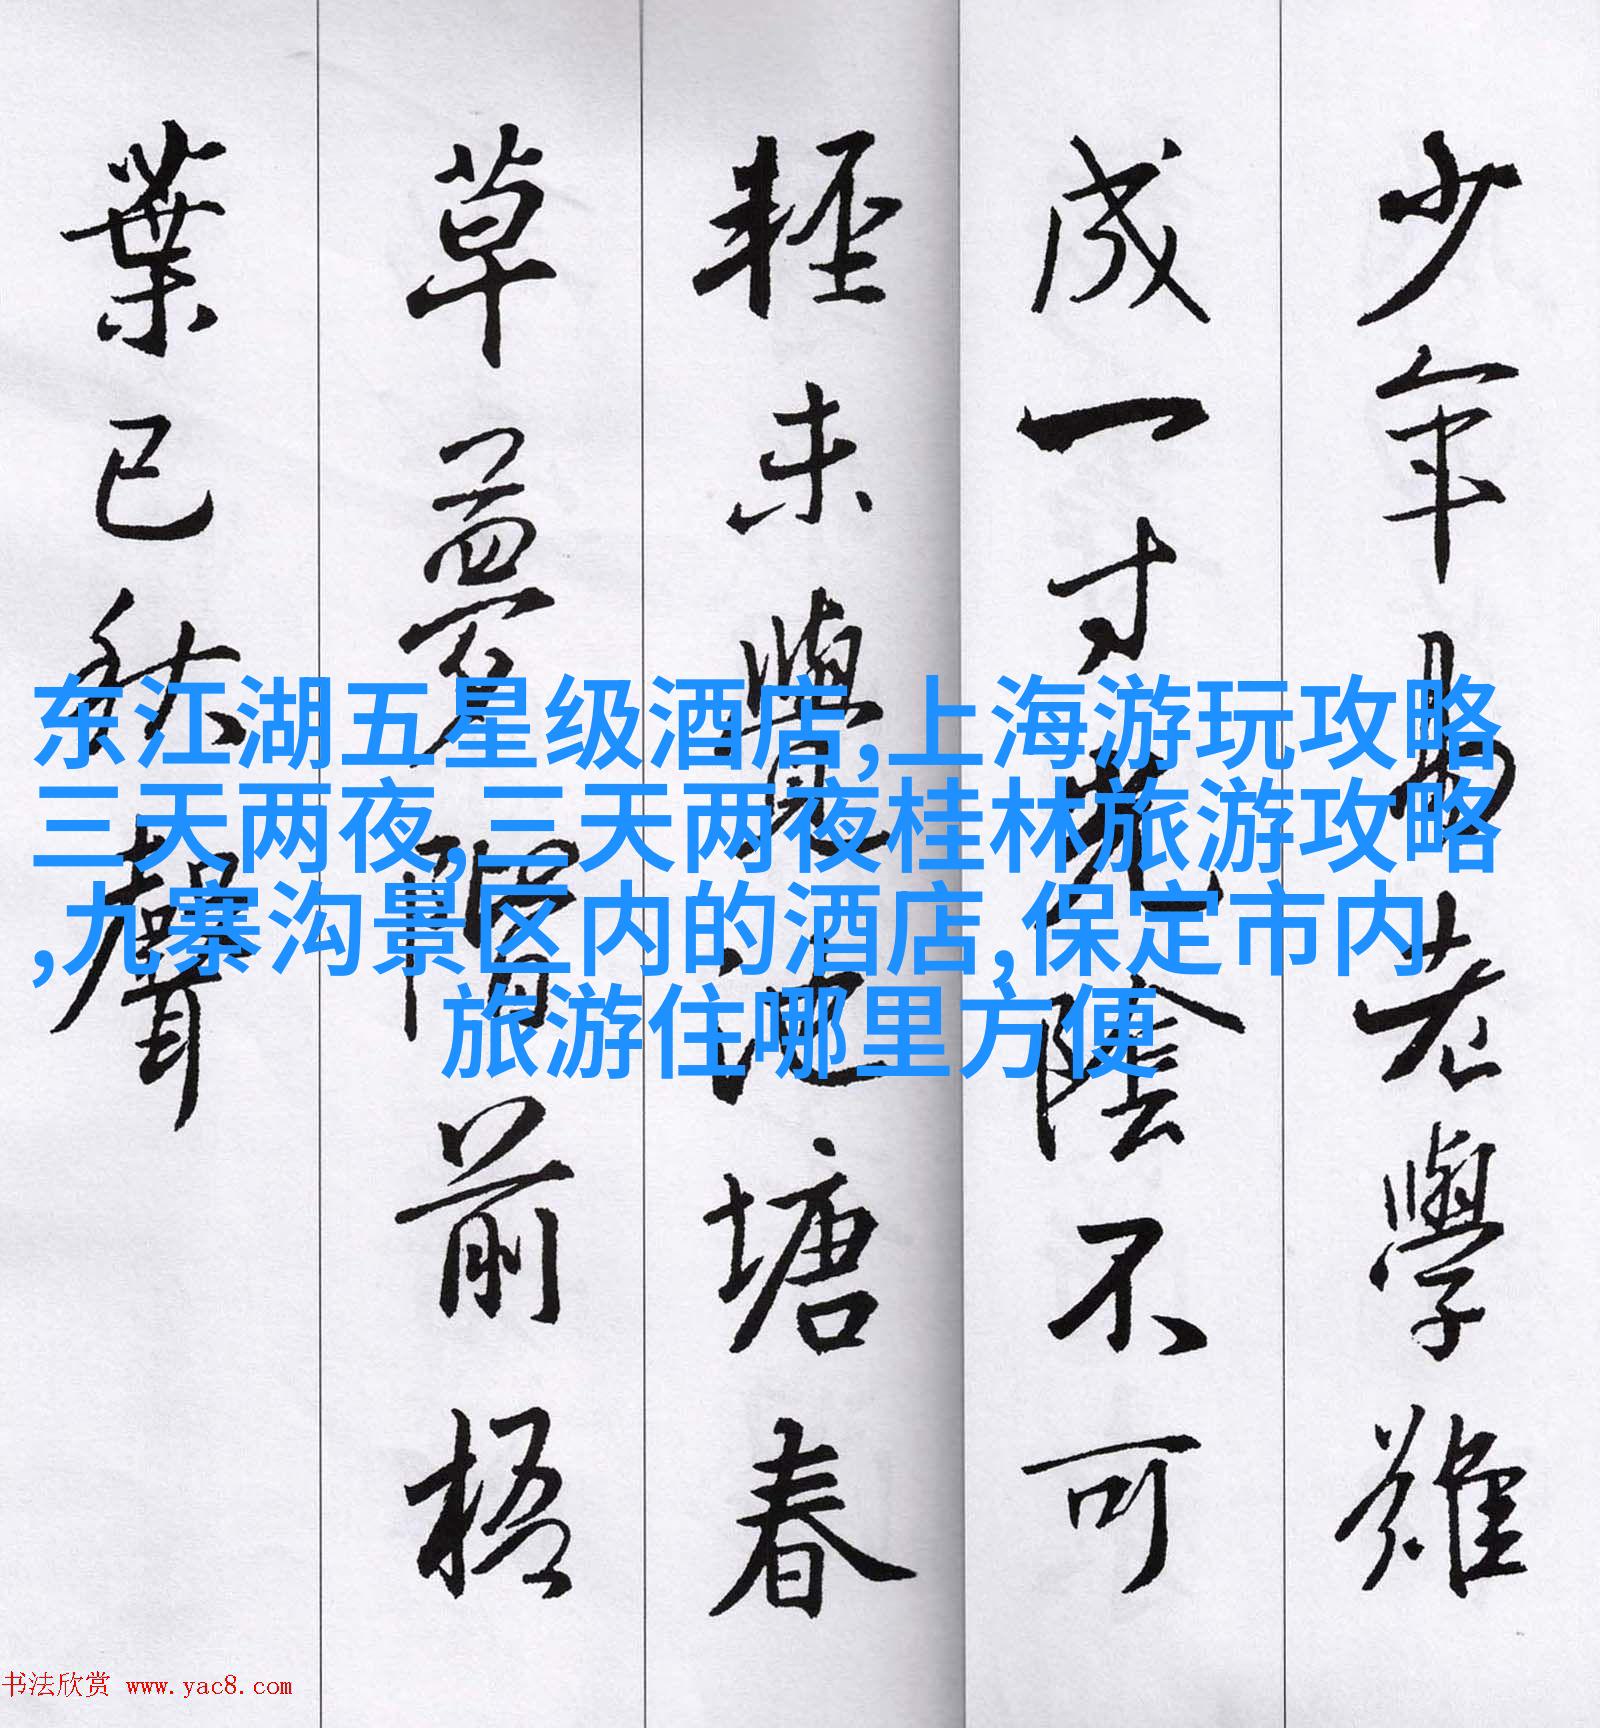 少年易老學難
成一寸光陰不可
輕未覺池塘春
草夢階前梧
葉已秋聲
东江湖五星级酒店,上海游玩攻略
三天两夜,三天两夜桂林旅游攻略
,九寨沟景区内的酒店,保定市内
旅游住哪里方便
书法欣赏 www.yac8.com